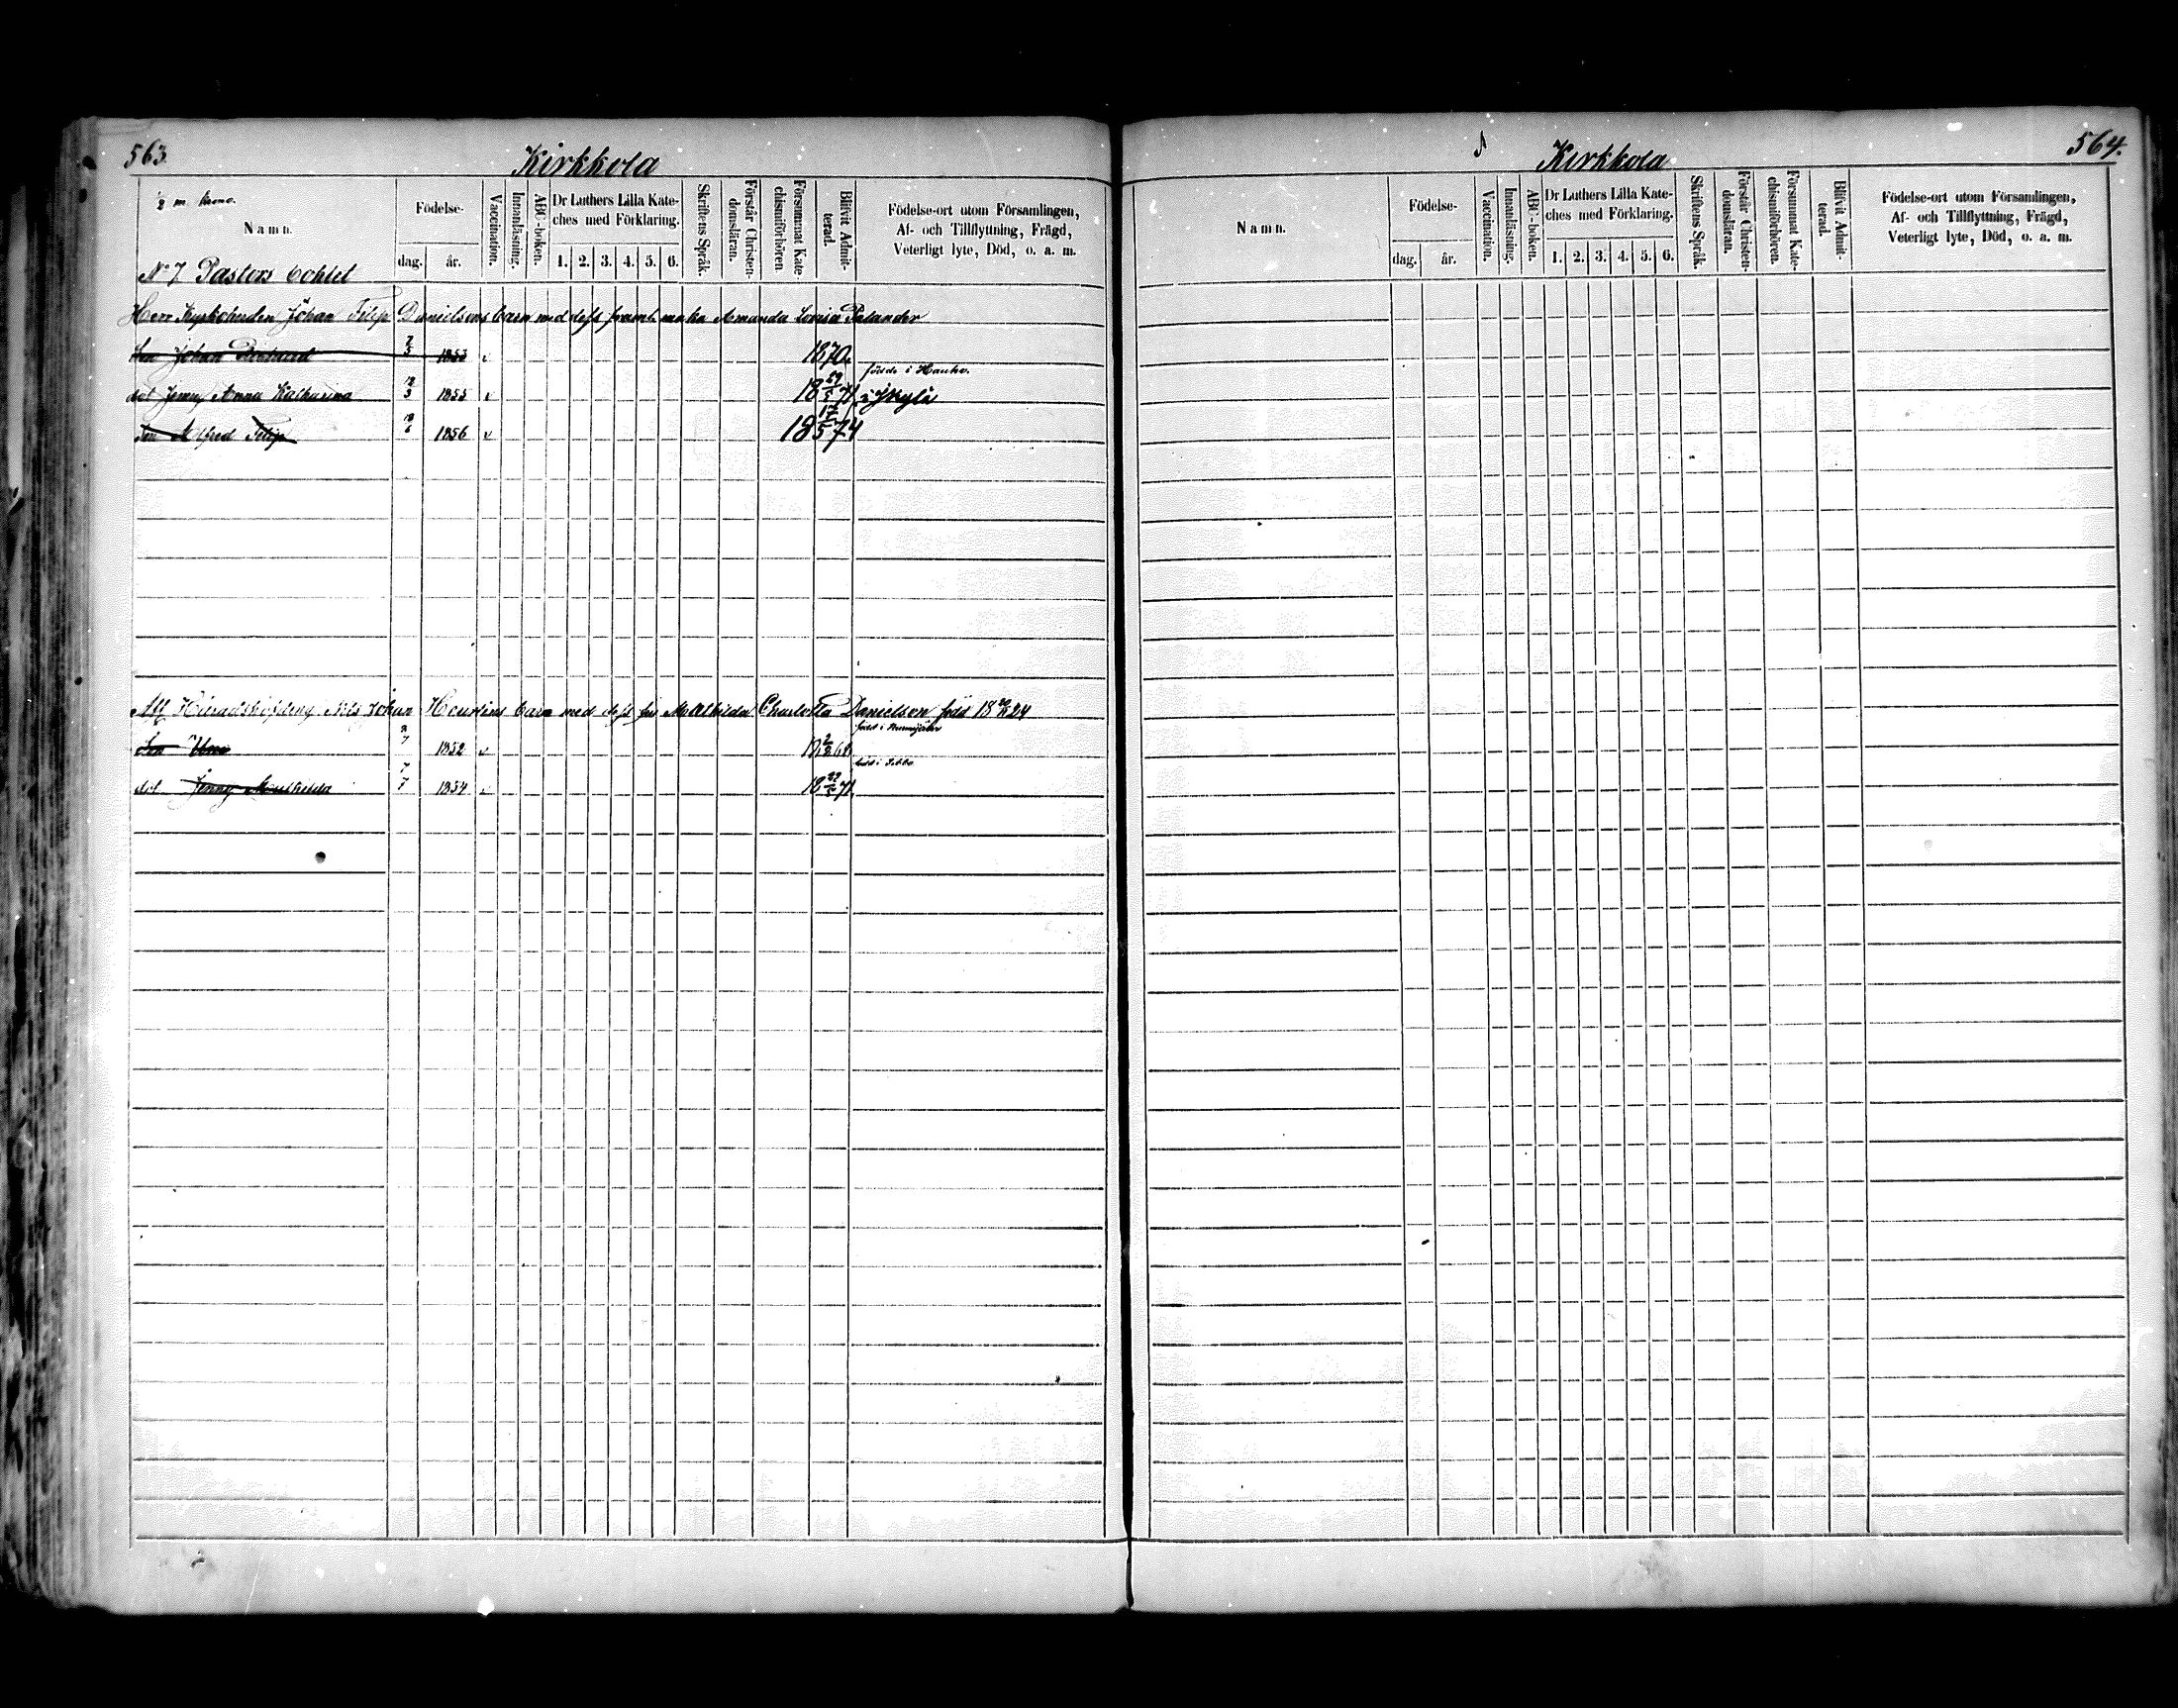 563.
Kirkkola
Namn.
Födelse-
dag. år.
Vaccination.
Innanläsning.
ABC-boken.
Dr Luthers Lilla Kate-
ches med Förklaring.
1. 2. 3. 4. 5. 6.
Skriftens Språk.
Förstår Christen-
domsläran.
Försummat Kate-
chismiförhören.
Blifvit Admit-
terad.
Födelse-ort utom Församlingen,
Af- och Tillflyttning, Frägd,
Veterligt lyte, Död, o. a. m.
No 7 Pastors
Herr Kyrkoherden Johan Filip Danielsons barn med dess framl. maka Amanda Lovisa Palander
Son Johan 7/5 1853 v 1870.
födde i Hauho.
dot Jenny Anna Katharina 12/3 1855 v 18 29/5 71
Son Alfred Filip 18/6 1856 v 18 17/5 74
Afl Häradshöfding Nils Johan barn med dess fru Mathilda Charlotta Danielson född 1824
född i
Son Uno 1852 v 18 68
född i Sibbo
dot Jenny Mathilda 7/7 1854 v 18 29/5 71.
564.
Kirkkola
Namn.
Födelse-
dag. år.
Vaccination.
Innanläsning.
ABC-boken.
Dr Luthers Lilla Kate-
ches med Förklaring.
1. 2. 3. 4. 5. 6.
Skriftens Språk.
Förstår Christen-
domsläran.
Försummat Kate-
chismiförhören.
Blifvit Admit-
terad.
Födelse-ort utom Församlingen,
Af- och Tillflyttning, Frägd,
Veterligt lyte, Död, o. a. m.